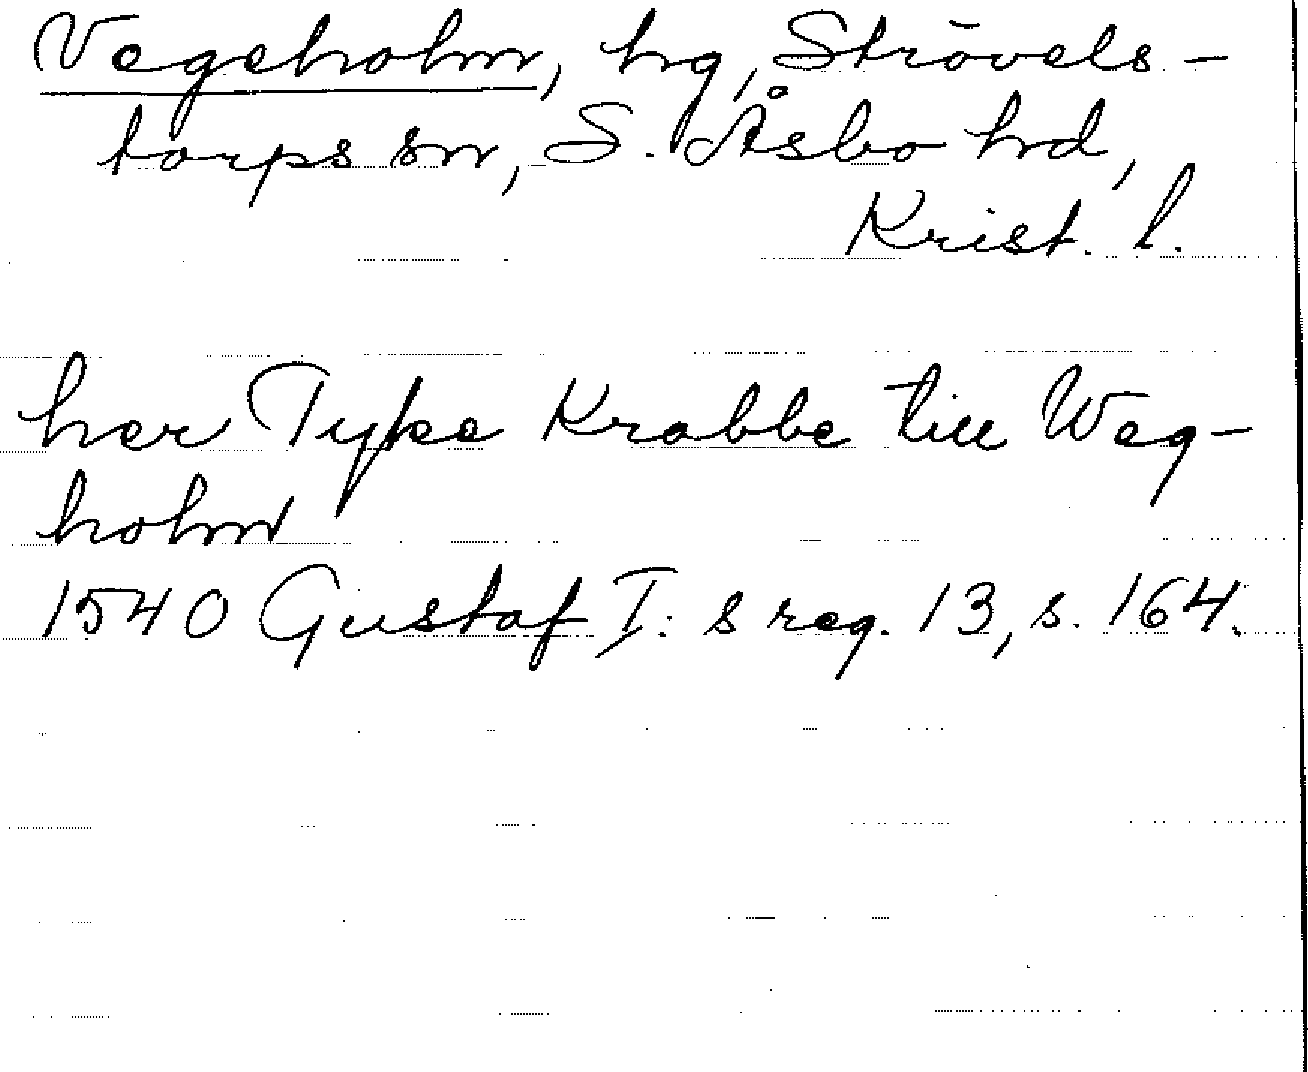 Vegeholm, hg, Strövels-
torps sn, S. Åsbo hd,
Krist. l.
her Tyke Krabbe till Weg-
holm
1540 Gustaf I:s reg. 13, s. 164.